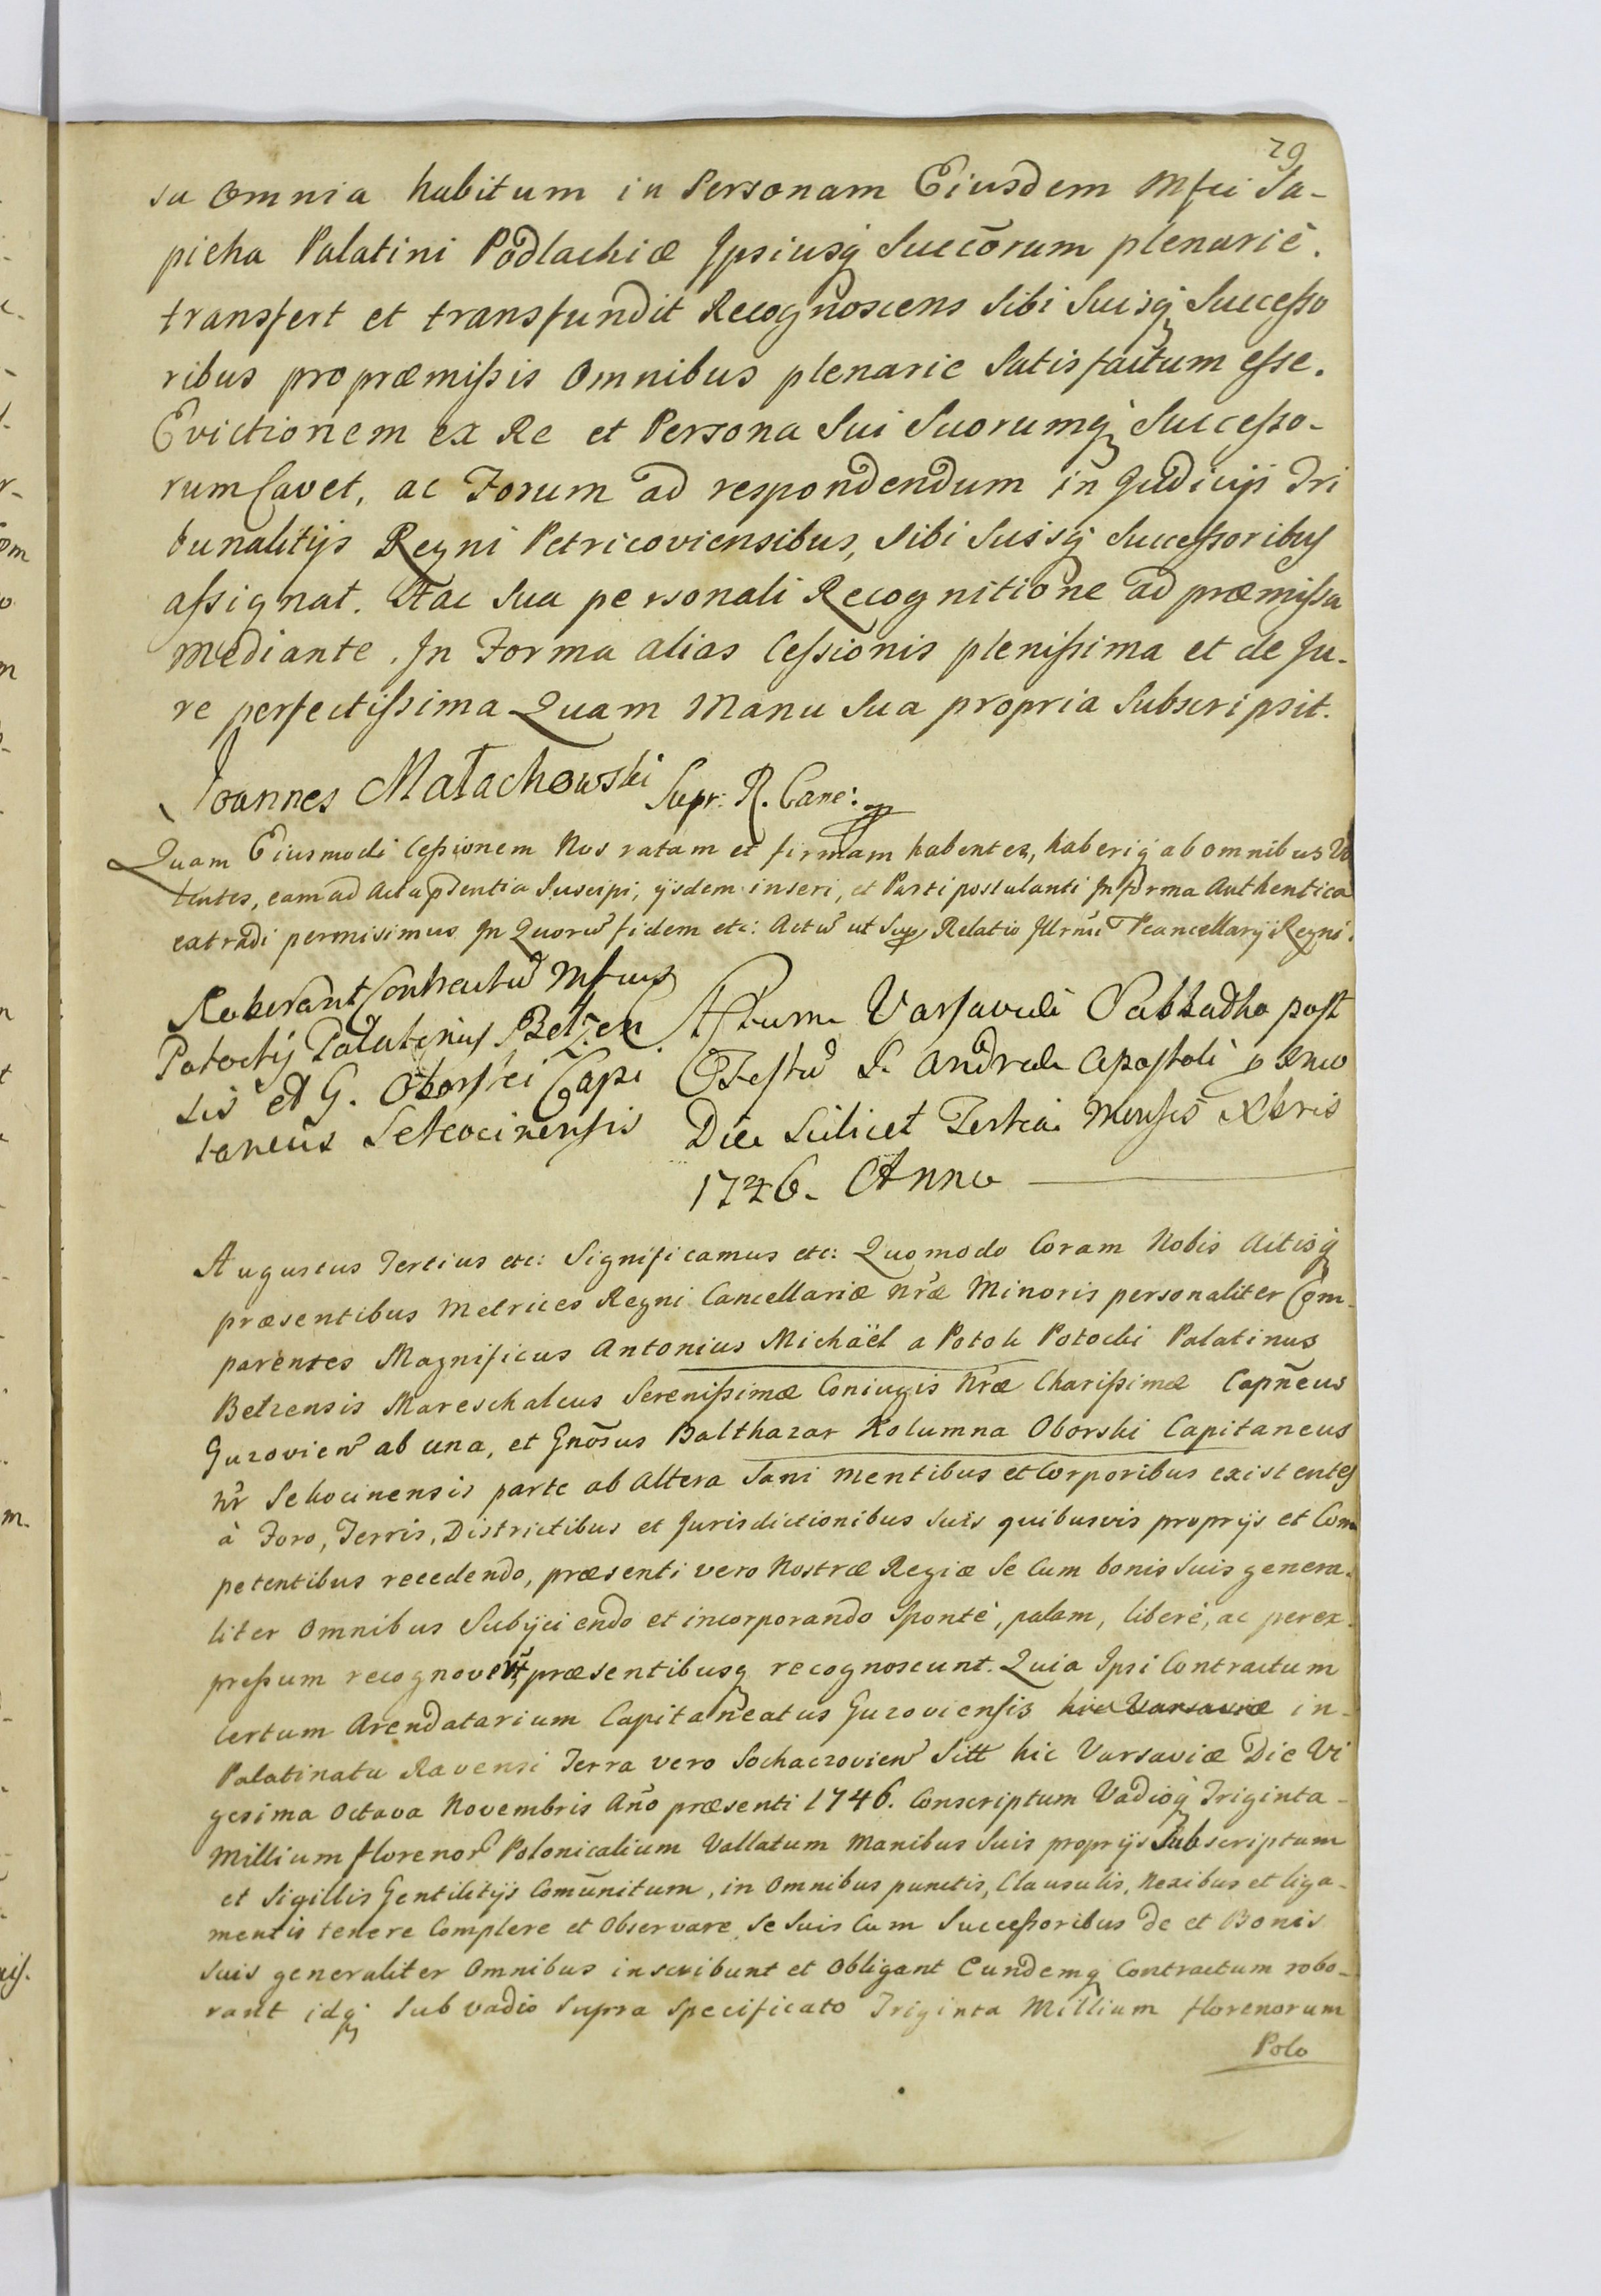 29
su omnia habitum in Personam Eiusdem Mfci Sa-
pieha Palatini Podlachiæ Ipsiusq Succorum plenariè.
transfert et transfundit Recognoscens Sibi Suisq Succeſso
ribus pro præmiſsis omnibus plenarie Satisfactum eſse.
Evictionem ex Re et Persona Sui Suorumq Succeſso-
rum Cavet, ac Forum ad respondendum in Judicijs Tri
bunalitijs Regni Petricoviensibus, Sibi Suisq Succeſsoribus
aſsignat. Hac Sua personali Recognitione ad præmiſsa
mediante. In Forma alias Ceſsionis pleniſsima et de Ju-
re perfectiſsima Quam Manu Sua propria Subscripsit.
Joannes Małachowski Supr: R. Canc:
Quam Eiusmodi Ceſsionem Nos ratam et firmam habentes, haberiq ab omnibus Vo
lentes, eam ad Acta pñtentia Suscipi, ijsdem inseri, et Parti postulanti In forma Authentica
extradi permisimus In Quorũ fidem etc: Actũ ut Supr Relatio Illrmi Vcancellarij Regni.
Roborant Contractũ Mfcus
Potocky Palatinus Belzen
sis et G. Oborski Capi
taneus Sekocinensis
Actum Varsaviæ Sabbatho post
Festũ S. Andreæ Apostoli pximo
Die Scilicet Tertia Mensis Xbris
1746. Anno
Augustus Tertius etc: Significamus etc: Quomodo Coram Nobis Actisq
præsentibus Metrices Regni Cancellariæ nræ Minoris personaliter Com-
parentes Magnificus Antonius Michaël a Potok Potocki Palatinus
Belzensis Mareschalcus Sereniſsimæ Coniugis Nræ Chariſsimæ Capñeus
Guzovien ab una, et Gnõsus Balthazar Kolumna Oborski Capitaneus
nr Sekocinensis parte ab altera Sani mentibus et Corporibus existentes
à Foro, Terris, Districtibus et Jurisdictionibus Suis quibusvis proprijs et Com
petentibus recedendo, præsenti vero Nostræ Regiæ Se Cum bonis Suis genera-
liter Omnibus Subijciendo et incorporando Spontè, palam, liberè, ac per ex-
preſsum recognoverũt præsentibusq recognoscunt. Quia Ipsi Contractum
certum Arendatarium Capitaneatus Guzoviensis hic Varsaviæ in-
Palatinatu Ravensi Terra vero Sochaczovien Sitt hic Varsaviæ Die Vi
gesima Octava Novembris Año præsenti 1746. Conscriptum Vadioq Triginta-
Millium florenor Polonicalium Vallatum Manibus Suis proprijs Subscriptum
et Sigillis Gentilitijs Comũnitum, in Omnibus punctis, Clausulis, Nexibus et liga-
mentis tenere Complere et Observare, Se Suis Cum Succeſsoribus de et Bonis
Suis generaliter Omnibus inscribunt et Obligant Eundemq Contractum robo-
rant idq Sub vadio Supra Specificato Triginta Millium florenorum
Polo